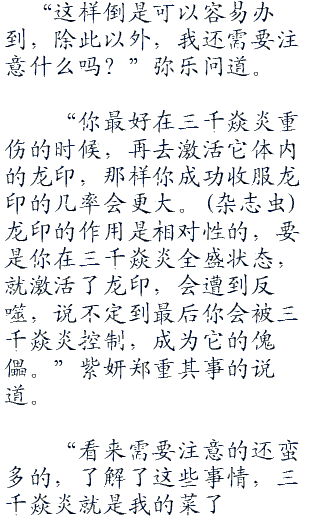 “这样倒是可以容易办
到，除此以外，我还需要注
意什么吗？”弥乐问道。
“你最好在三千焱炎重
伤的时候，再去激活它体内
的龙印，那样你成功收服龙
印的几率会更大。(杂志虫)
龙印的作用是相对性的，要
是你在三千焱炎全盛状态，
就激活了龙印，会遭到反
噬，说不定到最后你会被三
千焱炎控制，成为它的傀
儡。”紫妍郑重其事的说
道。
“看来需要注意的还蛮
多的，了解了这些事情，三
千焱炎就是我的菜了